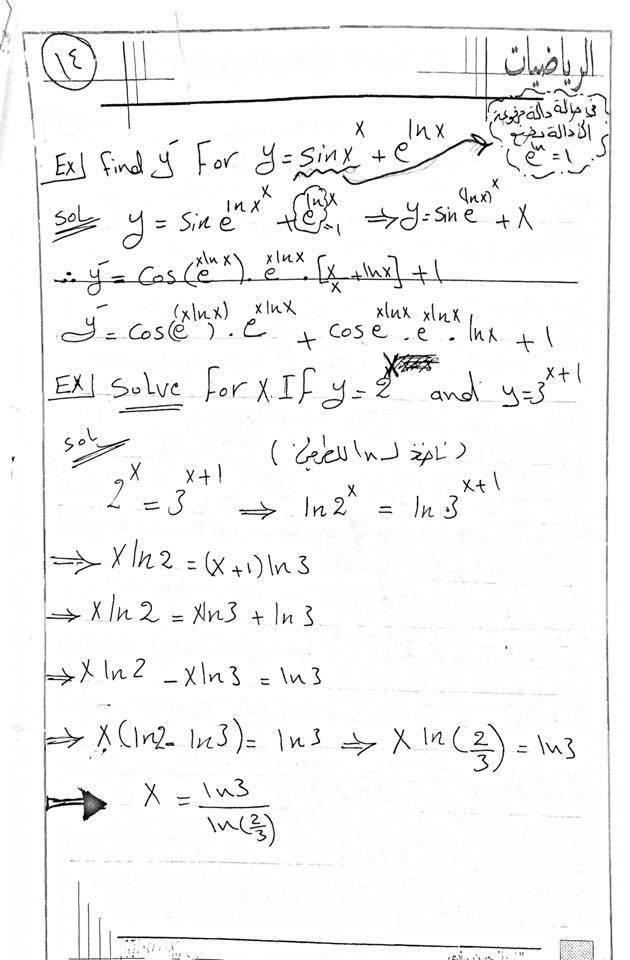 ١٤
الرياضيات
في حالة دالة مرفوعة
الأ دالة نضع
e^ln = 1
Ex] find y¯ For y = sinx^x + e^lnx
sol y = sin e^lnx^x + e^lnx =1 ⇒ y = sin e^(lnx)^x + x
∴ y¯ = cos(e^xlnx) . e^xlnx . [x/x + lnx] + 1
y¯ = cos(e^(xlnx)) . e^xlnx + cos e^xlnx . e^xlnx . lnx + 1
Ex] Solve for x. If y = 2^x and y = 3^x+1
sol ( ln للطرفين )
2^x = 3^x+1 ⇒ ln 2^x = ln 3^x+1
⇒ x ln 2 = (x+1) ln 3
⇒ x ln 2 = x ln 3 + ln 3
⇒ x ln 2 - x ln 3 = ln 3
⇒ x (ln 2 - ln 3) = ln 3 ⇒ x ln (2/3) = ln 3
⇒ x = ln 3 / ln (2/3)